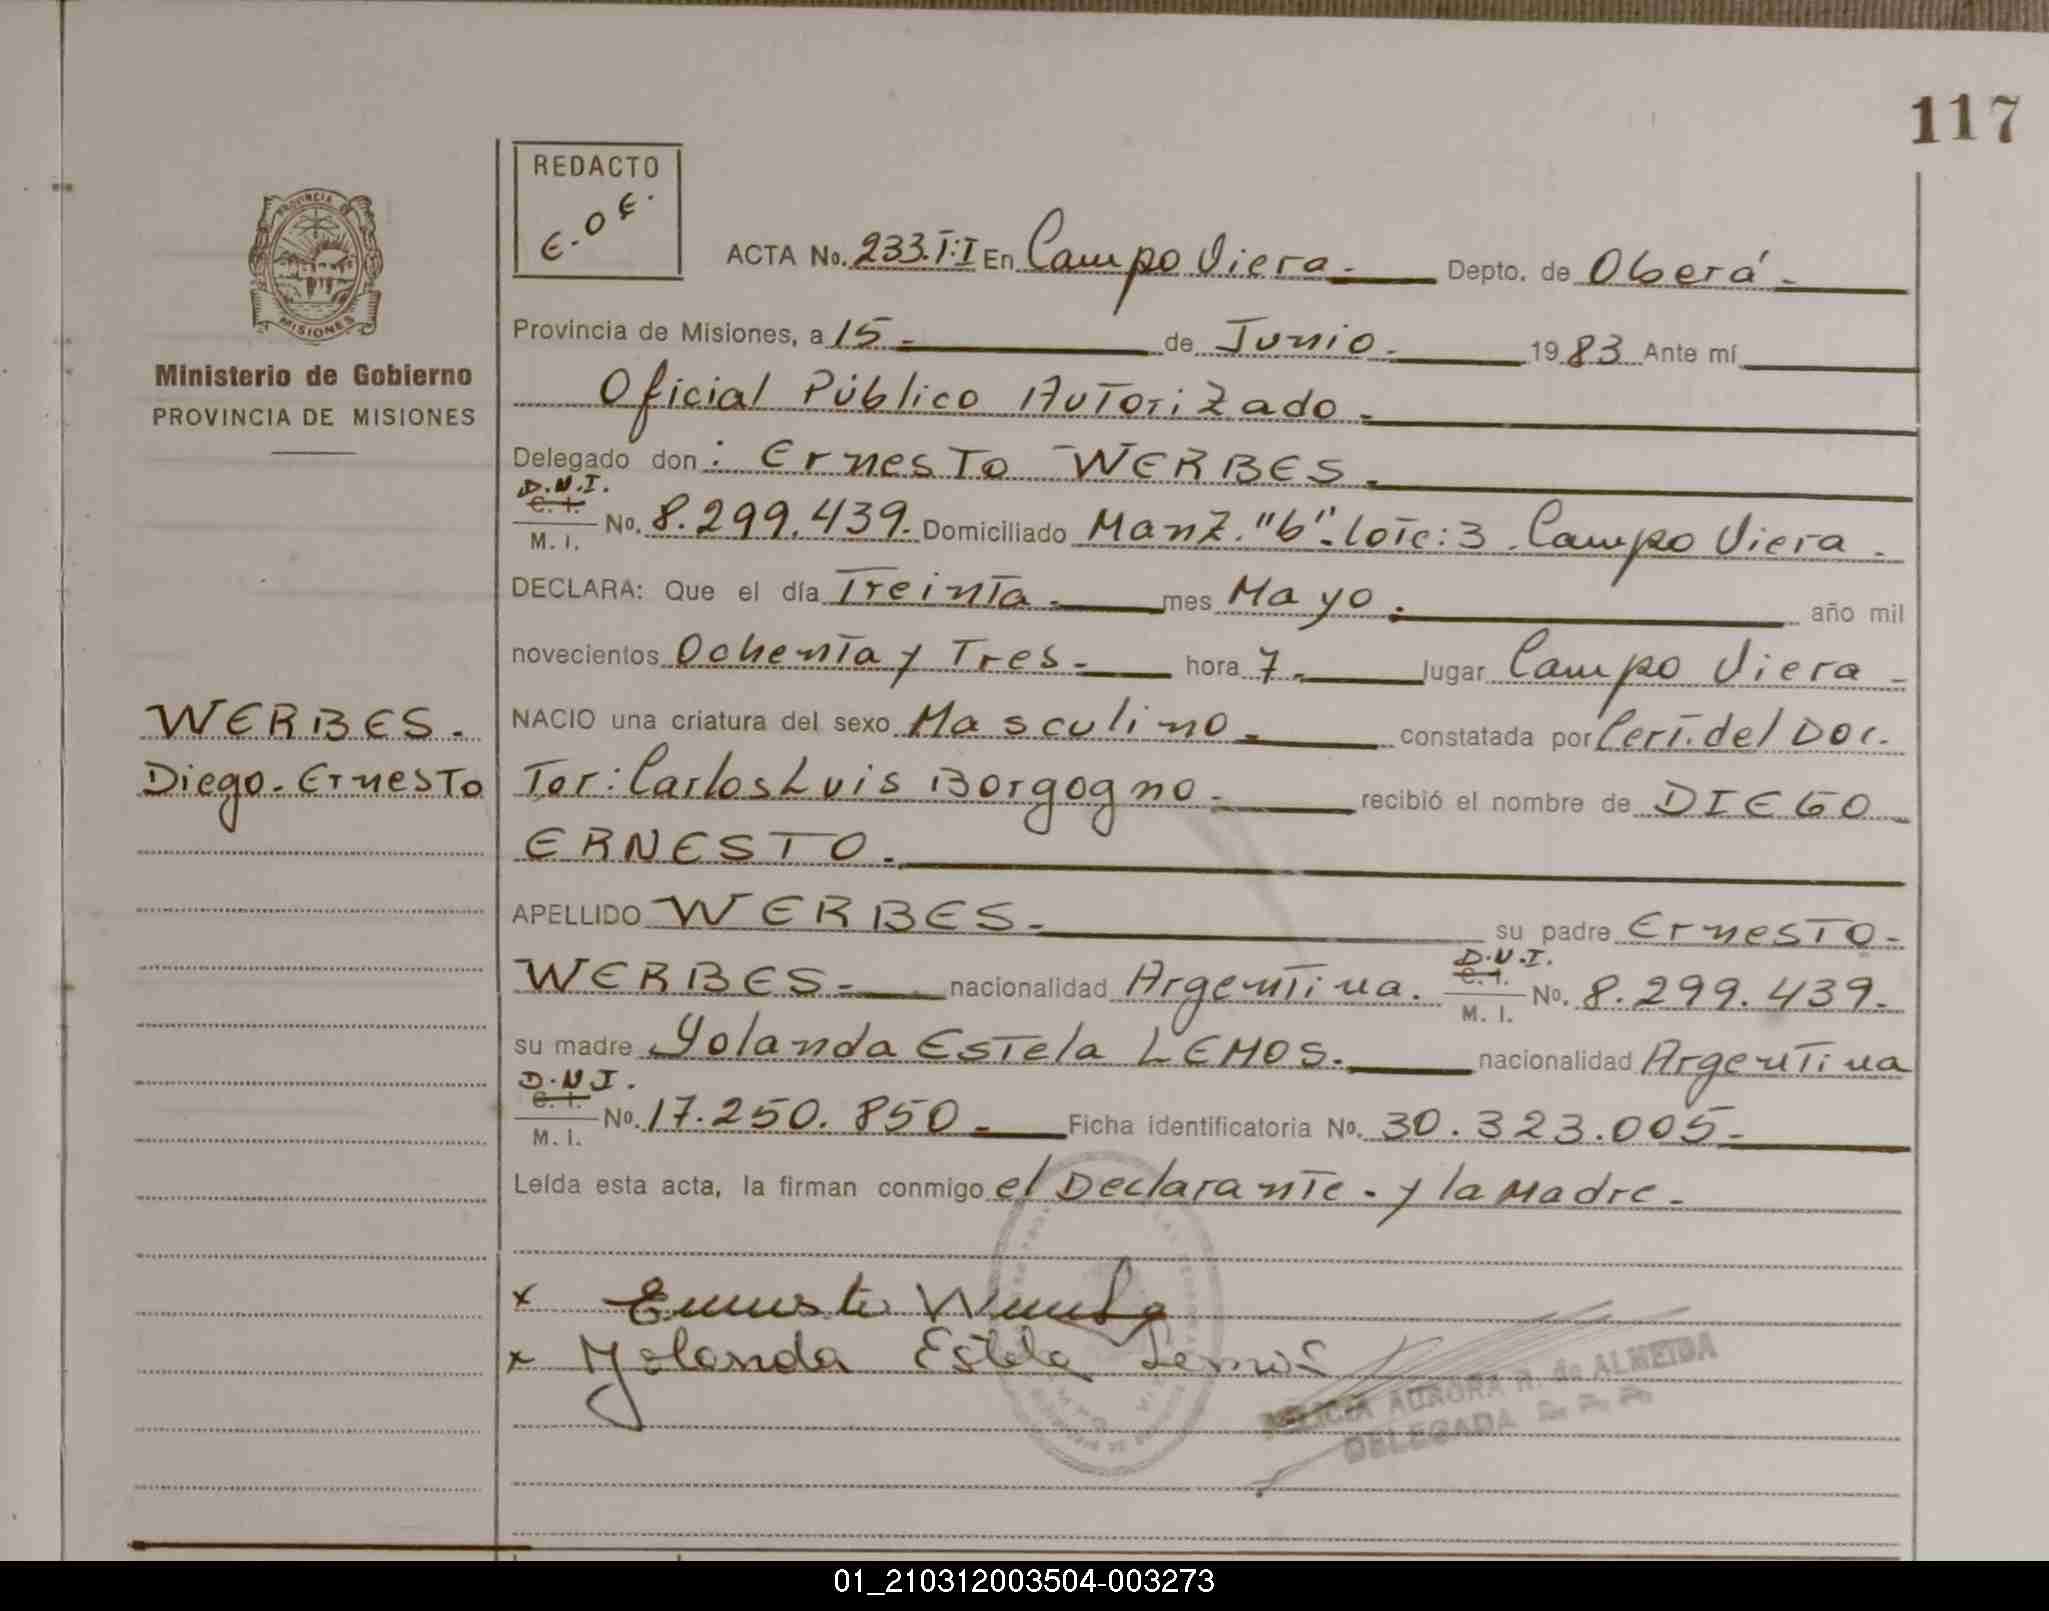 117
REDACTO
E.O.E.
PROVINCIA DE
MISIONES
Ministerio de Gobierno
PROVINCIA DE MISIONES
ACTA No. 233.T:I En Campo Viera.- Depto. de Oberá.-
Provincia de Misiones, a 15.- de Junio.- 1983 Ante mí
Oficial Público Autorizado.-
Delegado don: Ernesto WERBES.-
D.N.I.
C. I.
M. I. No. 8.299.439. Domiciliado Manz. "b". lote: 3. Campo Viera.-
DECLARA: Que el día Treinta.- mes Mayo.- año mil
novecientos Ochenta y Tres.- hora 7.- lugar Campo Viera-
WERBES.
Diego. Ernesto
NACIO una criatura del sexo Masculino.- constatada por Cert. del Doc.
Tor: Carlos Luis Borgogno.- recibió el nombre de DIEGO
ERNESTO.-
APELLIDO WERBES.- su padre Ernesto-
WERBES.- nacionalidad Argentina.
D.N.I.
C. I.
M. I. No. 8.299.439.-
su madre Yolanda Estela LEMOS.- nacionalidad Argentina
D.N.I.
C. I.
M. I. No. 17.250.850.- Ficha identificatoria No. 30.323.005.-
Leída esta acta, la firman conmigo el Declarante. y la Madre.-
x Ernesto
x Yolanda Estela Lemos
AURORA R. de ALMEIDA
DELEGADA
01_210312003504-003273